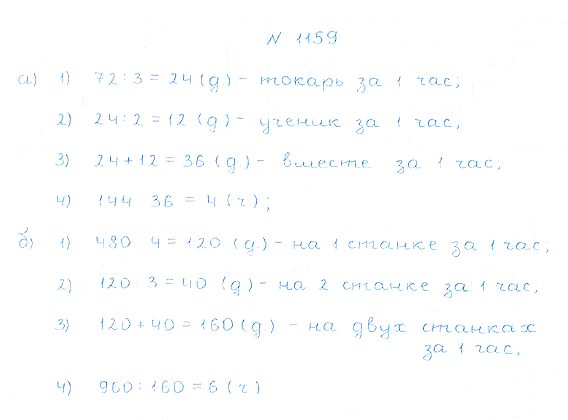 N 1159
а) 1) 72 : 3 = 24 (д) - токарь за 1 час;
2) 24 : 2 = 12 (д) - ученик за 1 час,
3) 24 + 12 = 36 (д.) - вместе за 1 час,
4) 144 36 = 4 (г);
б) 1) 480 4 = 120 (д.) - на 1 станке за 1 час;
2) 120 3 = 40 (д) - на 2 станке за 1 час,
3) 120 + 40 = 160 (д.) - на двух станках
за 1 час,
4) 960 : 160 = 6 (г)